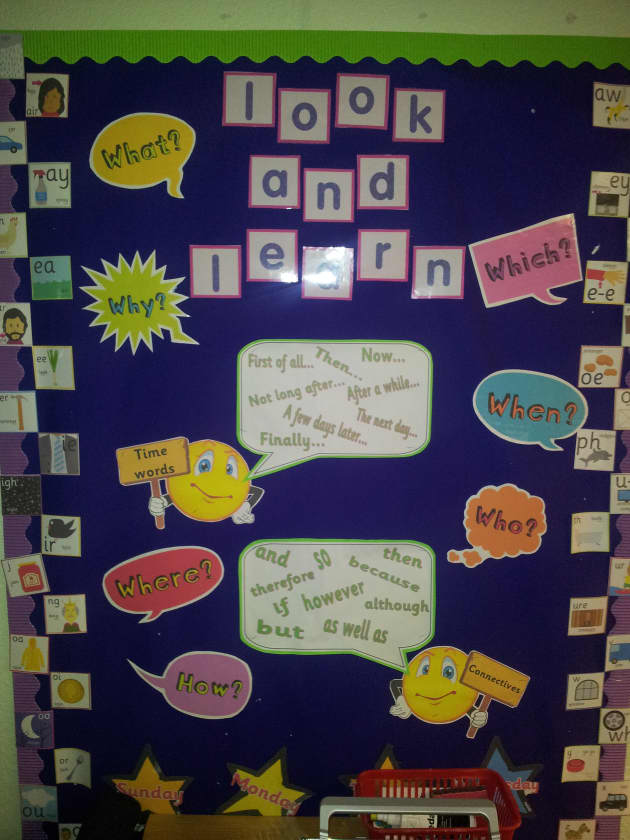 look
and
learn
What?
Why?
Which?
When?
Who?
Where?
How?
First of all... Then... Now...
Not long after... After a while...
A few days later... The next day...
Finally...
Time
words
and so then
therefore because
if however although
but as well as
Connectives
Sunday
Monday
air
ay
ea
ee
igh
ir
j
ng
oa
oi
oo
or
ou
aw
ey
e-e
oe
ph
th
ure
w
wh
y